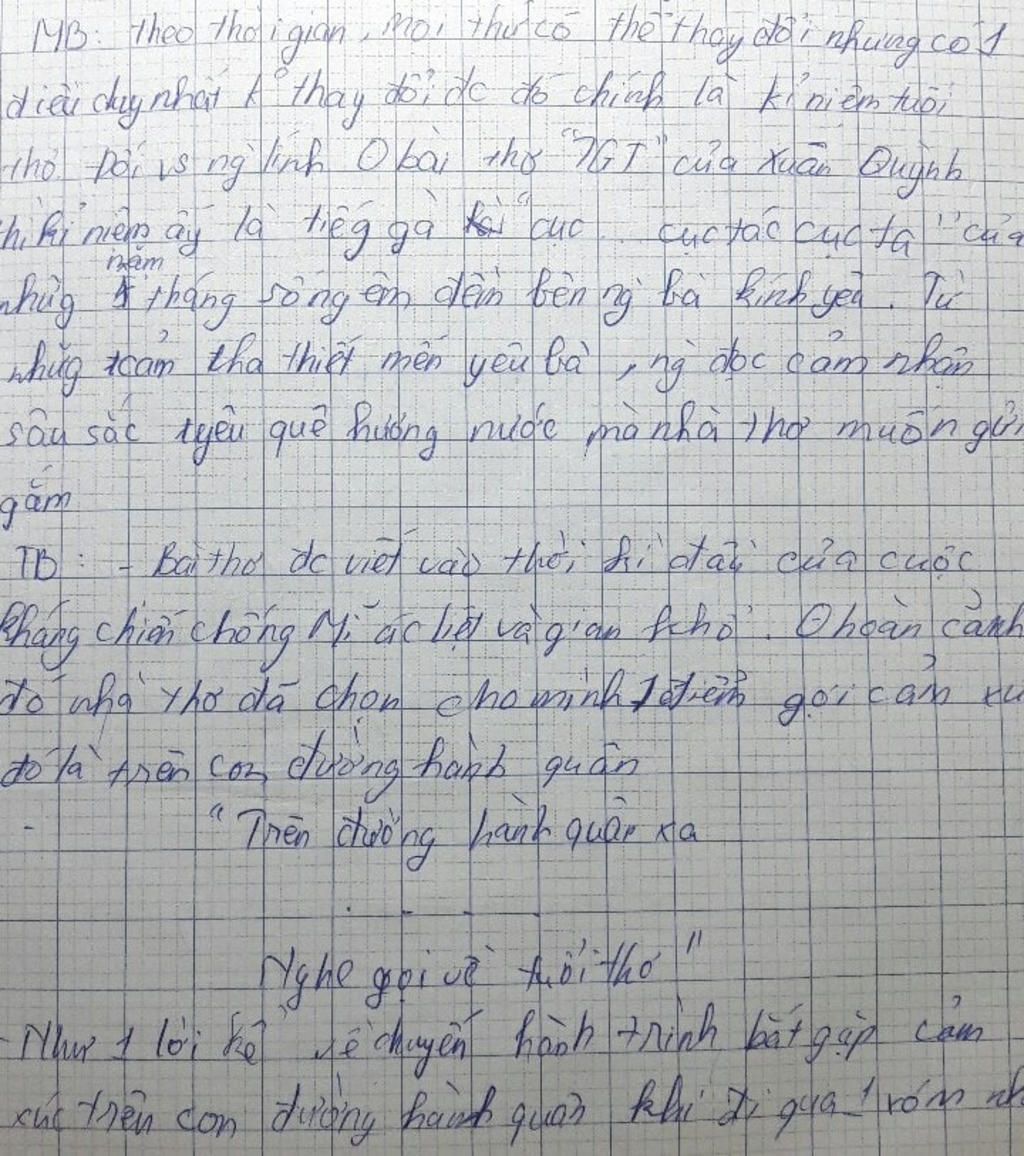 MB: Theo thời gian, mọi thứ có thể thay đổi nhưng có 1
điều duy nhất k thay đổi đc đó chính là kỉ niệm tuổi
thơ. Đối vs ng lính O bài thơ "TGT" của Xuân Quỳnh
thì kỉ niệm ấy là tiếg gà "cục... cục tác cục ta" của
nhữg năm tháng sống êm đềm bên ng bà kính yêu. Từ
nhữg tcảm tha thiết mến yêu bà, ng đọc cảm nhận
sâu sắc tyêu quê hương nước mà nhà thơ muốn gửi
gắm
TB: - Bài thơ đc viết vào thời kì đầu của cuộc
kháng chiến chống Mĩ ác liệt và gian khổ. O hoàn cảnh
đó nhà thơ đã chọn cho mình 1 điểm gợi cảm xú
đó là trên con đường hành quân
- "Trên đường hành quân xa
. - - -
Nghe gọi về tuổi thơ"
- Như 1 lời kể về chuyến hành trình bắt gặp cảm
xúc trên con đường hành quân khi đi qua 1 xóm nh